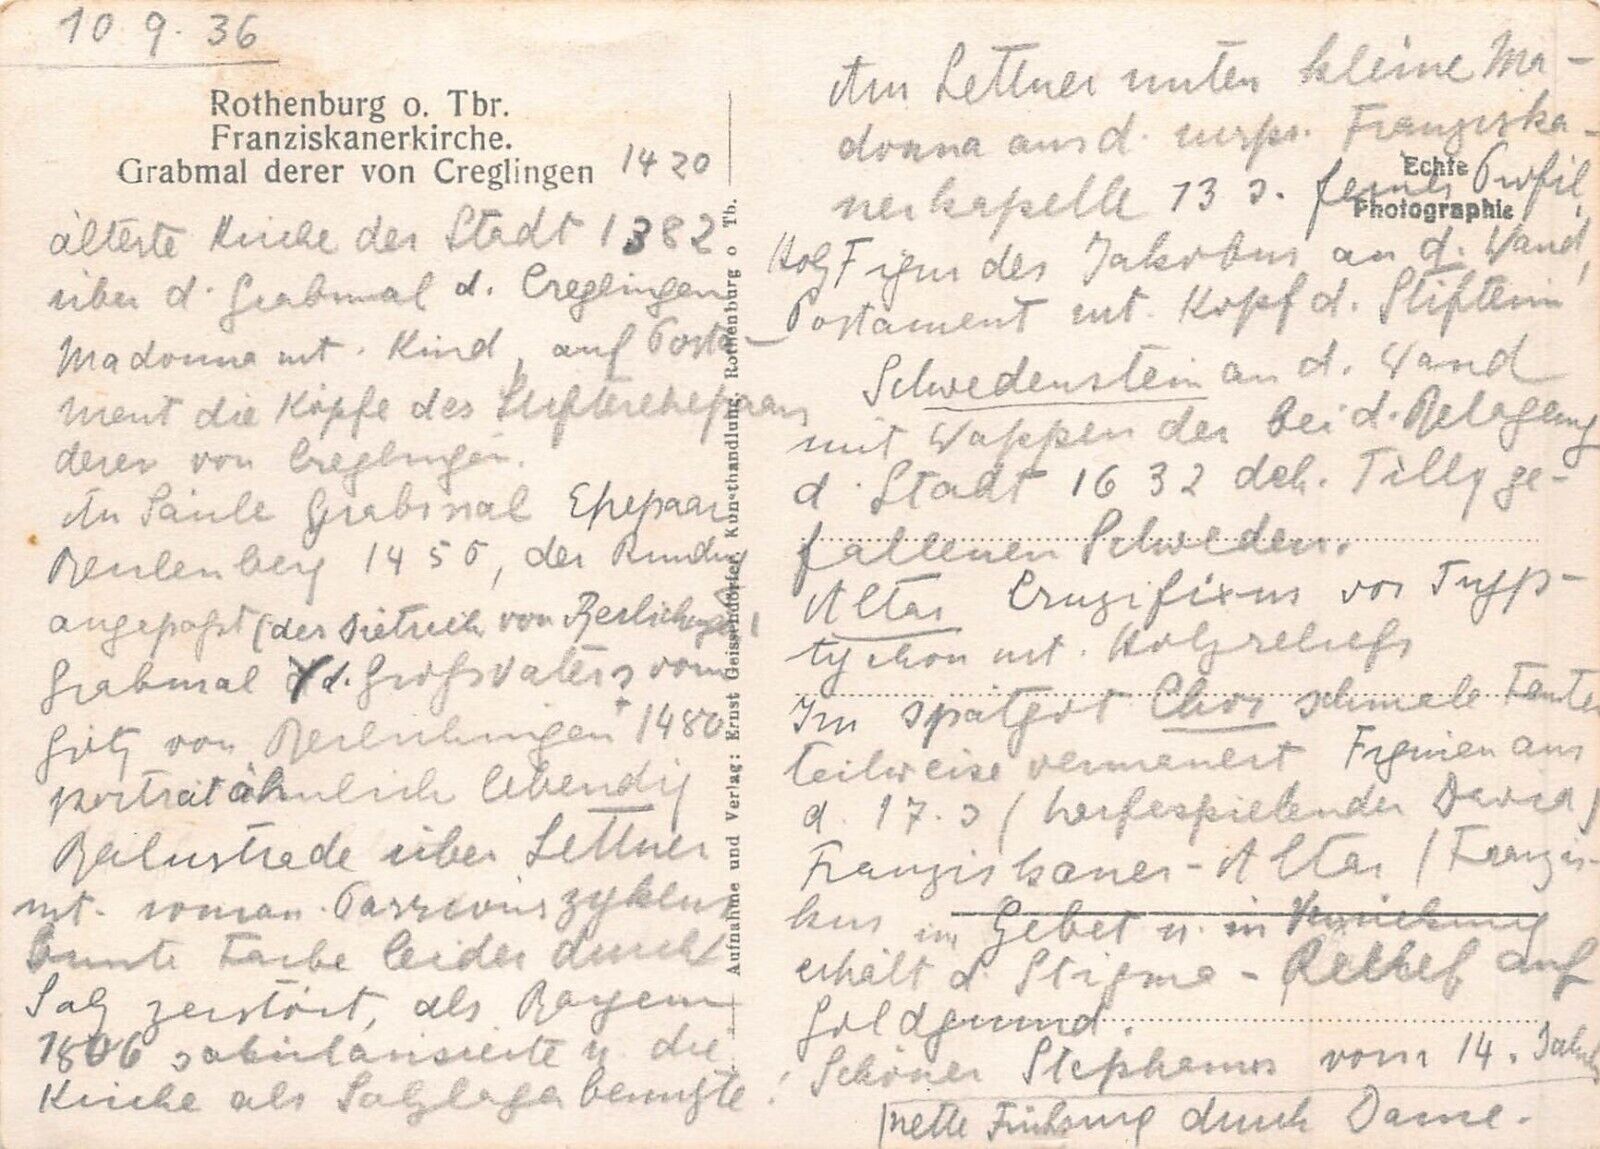 10 9. 36
Rothenburg o. Tbr.
Franziskanerkirche.
Grabmal derer von Creglingen 1420
älteste Kirche der Stadt 1382
über d. Grabmal d. Creglingen
Madonna mt. Kind, auf Posta-
ment die Köpfe des Stifterehepaars
derer von Creglingen.
An Säule Grabmal Ehepaar
1450, der Rundung
angepaßt (des Dietrich von Berlichingen
Grabmal d. Großvaters vom
Götz von Berlichingen † 1480
porträtähnlich lebendig
Balustrade über Lettner
mt. roman. Passionszyklus
bunte Farbe leider durch
Salz zerstört, als Bayern
1806 säkularisierte u. die
Kirche als Salzlager benutzte!
Aufnahme und Verlag: Ernst Geissendörfer, Kunsthandlung, Rothenburg o Tb.
Am Lettner unten kleine Ma-
donna aus d. urspr. Franziska-
nerkapelle 13 J. feines Profil,
Echte
Photographie
Holz Figur des Jakobus an d. Wand,
Postament mt. Kopf d. Stifterin
Schwedenstein an d. Wand
mit Wappen der bei d. Belagerung
d. Stadt 1632 dch. Tilly ge-
fallenen Schweden.
Altar Cruzifixus vor Tryp-
tychon mt. Holzreliefs
Im spätgot Chor schmale Fenster
teilweise vermauert Figuren aus
d. 17. J (harfespielender David)
Franziskaner-Altar (Franzis-
kus im Gebet u. in
erhält d Stigma - Relief auf
Goldgrund.
Schöner Stephanus vom 14. Jahrh
nette Führung durch Dame.